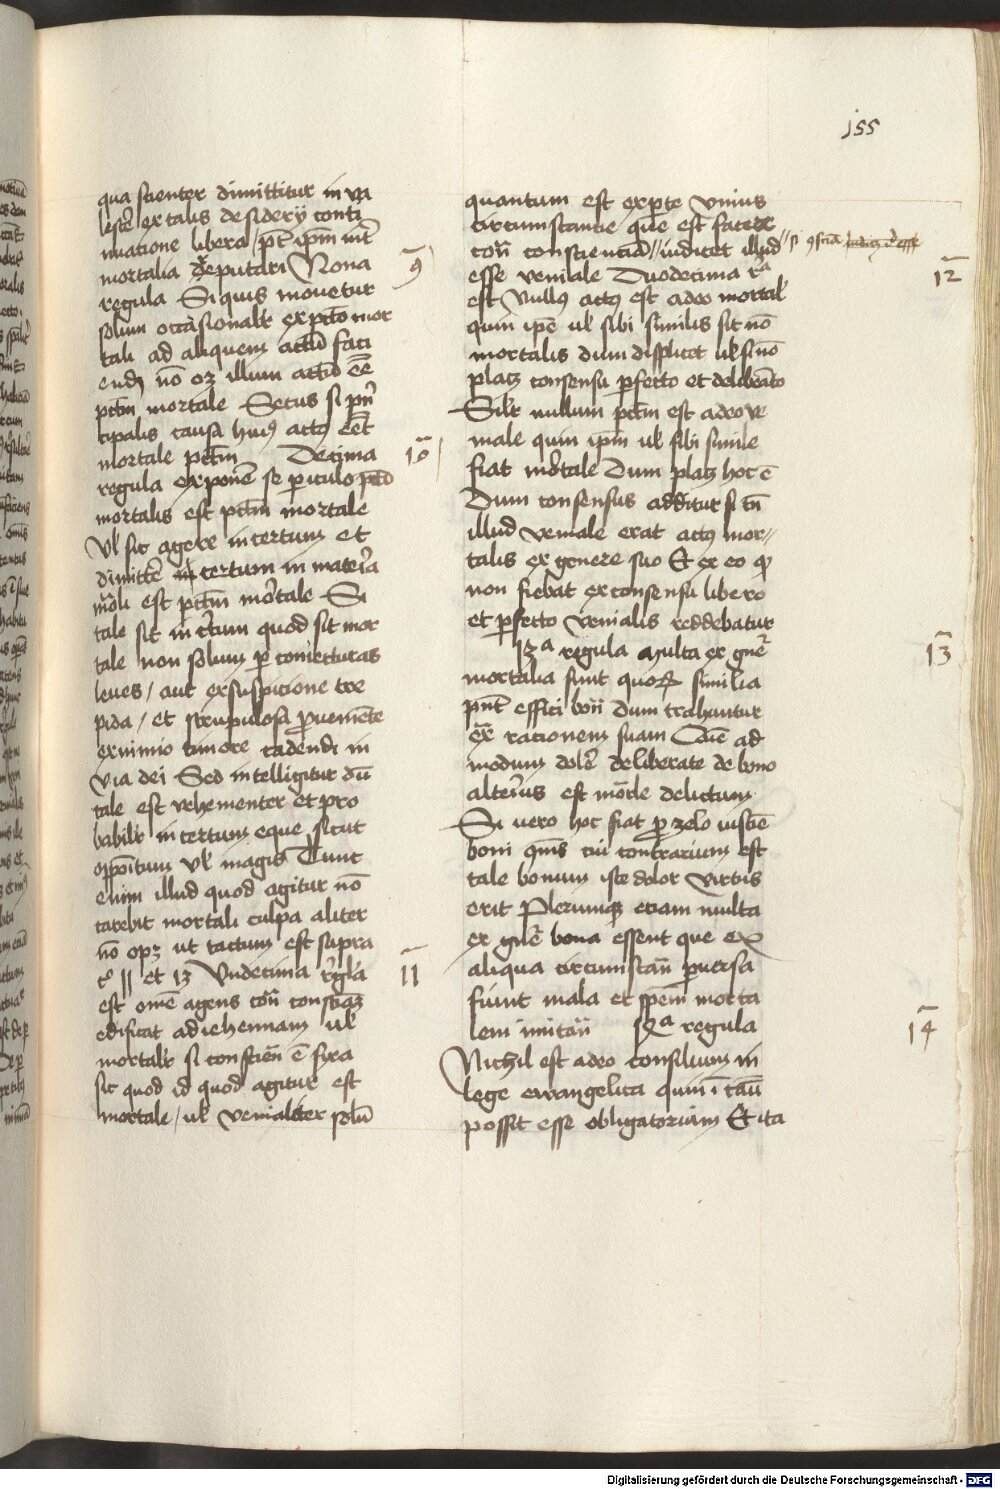 155
qua scienter dimittitur in va
lesce ex talis desiderij conti
nuatione libera / pt ipm int
mortalia deputari Nona
9
regula Si quis mouetur
solum occasionalr ex pcto mor
tali ad aliquem actu faci
endu no oz illum actu ee
pctm mortale Secus si prin
cipalis causa huius actus eet
mortale pctm Decima
10
regula exponere se periculo pcti
mortalis est pctm mortale
Vl sic agere incertum et
dimittere certum in materia
morali est pctm mortale Si
tale sit incertum quod sit mor
tale non solum per coniecturas
leues / aut ex suspicione tre
pida / et scrupulosa proueniente
ex nimio timore cadendi in
via dei Sed intelligitur du
tale est vehementer et pro
babilr incertum eque sicut
oppositum vl magis Tunc
enim illud quod agitur no
carebit mortali culpa aliter
no opz ut tactum est supra
co 11 et 13 Undecima regla
11
est ome agens contra conscia
edificat ad iehennam vl
mortalr si conscien e fixa
sic quod id quod agitur est
mortale / vl venialiter solu
quantum est ex parte vnius
circumstancie que est facere
contra conscienciam // iudicet illud // si 9scia
esse veniale Duodecima ra
12
est Nullus actus est adeo mortal
quin ipe vl sibi similis sit no
mortalis dum displicet vl si no
placz consensu perfecto et deliberato
Silr nullum pctm est adeo ve
niale quin ipm vl sibi simile
fiat mortale Dum placz hoc e
Dum consensus additur si tn
illud veniale erat actus mor//
talis ex genere suo Et ex eo qr
non fiebat ex consensu libero
et perfecto venialis reddebatur
13a regula Multa ex gne
13
mortalia sunt quorum similia
pnt effici boni dum trahuntur
extra rationem suam Quem ad
modum dolere deliberate de bono
alterius est mortale delictum
Si uero hoc fiat pro zelo iusticie
boni communis cui contrarium est
tale bonum iste dolor virtus
erit Plerumque eciam multa
ex gne bona essent que ex
aliqua circumstan peruersa
fiunt mala et speciem morta
lem imitan 14a regula
14
Nichil est adeo consilium in
lege ewangelica quin in cau
possit esse obligatorium Et ita
Digitalisierung gefördert durch die Deutsche Forschungsgemeinschaft - DFG